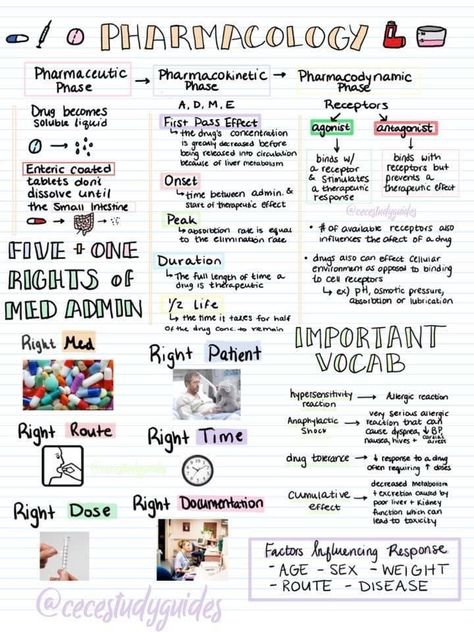 PHARMACOLOGY
Pharmaceutic
Phase
Pharmacokinetic
Phase
Pharmacodynamic
Phase
Drug becomes
soluble liquid
Enteric coated
tablets dont
dissolve until
the Small Intestine
A, D, M, E
First Pass Effect
the drug's concentration
is greatly decreased before
being released into circulation
because of liver metabolism
Onset
time between admin. &
start of therapeutic effect
Peak
absorbtion rate is equal
to the elimination rate
Duration
The full length of time a
drug is therapeutic
1/2 Life
the time it takes for half
of the drug conc. to remain
Receptors
agonist
antagonist
binds w/
a receptor
& Stimulates
a therapeutic
response
binds with
receptors but
prevents a
therapeutic effect
@cecestudyguides
• # of available receptors also
influences the affect of a drug
• drugs also can effect cellular
environment as opposed to binding
to cell receptors
ex) pH, osmotic pressure,
absorbtion or lubrication
FIVE + ONE
RIGHTS of
MED ADMIN
Right Med
Right Patient
Right Route
Right Time
Right Dose
Right Documentation
@cecestudyguides
IMPORTANT
VOCAB
hypersensitivity
reaction
Allergic reaction
Anaphylactic
Shock
very serious allergic
reaction that can
cause dyspnea, ↓ BP,
nausea, hives + cardiac arrest
drug tolerance
↓ response to a drug
often requiring ↑ doses
Cumulative
effect
decreased metabolism
+ excretion caused by
poor liver + Kidney
function which can
lead to toxicity
Factors Influencing Response
- AGE - SEX - WEIGHT
- ROUTE - DISEASE
@cecestudyguides